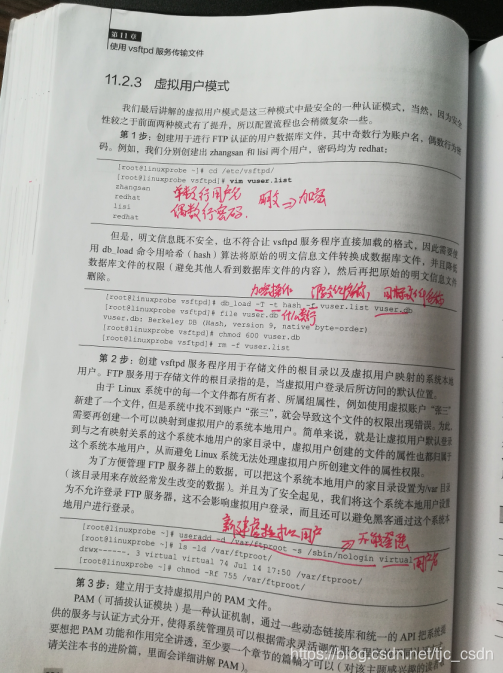 第11章
使用 vsftpd 服务传输文件
11.2.3 虚拟用户模式
我们最后讲解的虚拟用户模式是这三种模式中最安全的一种认证模式，当然，因为安全
性较之于前面两种模式有了提升，所以配置流程也会稍微复杂一些。
第 1 步：创建用于进行 FTP 认证的用户数据库文件，其中奇数行为账户名，偶数行为密
码。例如，我们分别创建出 zhangsan 和 lisi 两个用户，密码均为 redhat：
[root@linuxprobe ~]# cd /etc/vsftpd/
[root@linuxprobe vsftpd]# vim vuser.list
zhangsan
redhat
lisi
redhat
单数行用户名
偶数行密码.
明文 → 加密
但是，明文信息既不安全，也不符合让 vsftpd 服务程序直接加载的格式，因此需要使
用 db_load 命令用哈希（hash）算法将原始的明文信息文件转换成数据库文件，并且降低
数据库文件的权限（避免其他人看到数据库文件的内容），然后再把原始的明文信息文件
删除。
[root@linuxprobe vsftpd]# db_load -T -t hash -f vuser.list vuser.db
[root@linuxprobe vsftpd]# file vuser.db
什么类型
vuser.db: Berkeley DB (Hash, version 9, native byte-order)
[root@linuxprobe vsftpd]# chmod 600 vuser.db
[root@linuxprobe vsftpd]# rm -f vuser.list
第 2 步：创建 vsftpd 服务程序用于存储文件的根目录以及虚拟用户映射的系统本地
用户。FTP 服务用于存储文件的根目录指的是，当虚拟用户登录后所访问的默认位置。
由于 Linux 系统中的每一个文件都有所有者、所属组属性，例如使用虚拟账户“张三”
新建了一个文件，但是系统中找不到账户“张三”，就会导致这个文件的权限出现错误。为此，
需要再创建一个可以映射到虚拟用户的系统本地用户。简单来说，就是让虚拟用户默认登录
到与之有映射关系的这个系统本地用户的家目录中，虚拟用户创建的文件的属性也都归属于
这个系统本地用户，从而避免 Linux 系统无法处理虚拟用户所创建文件的属性权限。
为了方便管理 FTP 服务器上的数据，可以把这个系统本地用户的家目录设置为/var 目录
（该目录用来存放经常发生改变的数据）。并且为了安全起见，我们将这个系统本地用户设置
为不允许登录 FTP 服务器，这不会影响虚拟用户登录，而且还可以避免黑客通过这个系统本
地用户进行登录。
[root@linuxprobe ~]# useradd -d /var/ftproot -s /sbin/nologin virtual
用户名
[root@linuxprobe ~]# ls -ld /var/ftproot/
drwx------. 3 virtual virtual 74 Jul 14 17:50 /var/ftproot/
[root@linuxprobe ~]# chmod -Rf 755 /var/ftproot/
第 3 步：建立用于支持虚拟用户的 PAM 文件。
PAM（可插拔认证模块）是一种认证机制，通过一些动态链接库和统一的 API 把系统提
供的服务与认证方式分开，使得系统管理员可以根据需求灵活调
要想把 PAM 功能和作用完全讲透，至少要一个章节的篇幅才可以（对该主题感兴趣的读者
请关注本书的进阶篇，里面会详细讲解 PAM）。
https://blog.csdn.net/tjc_csdn